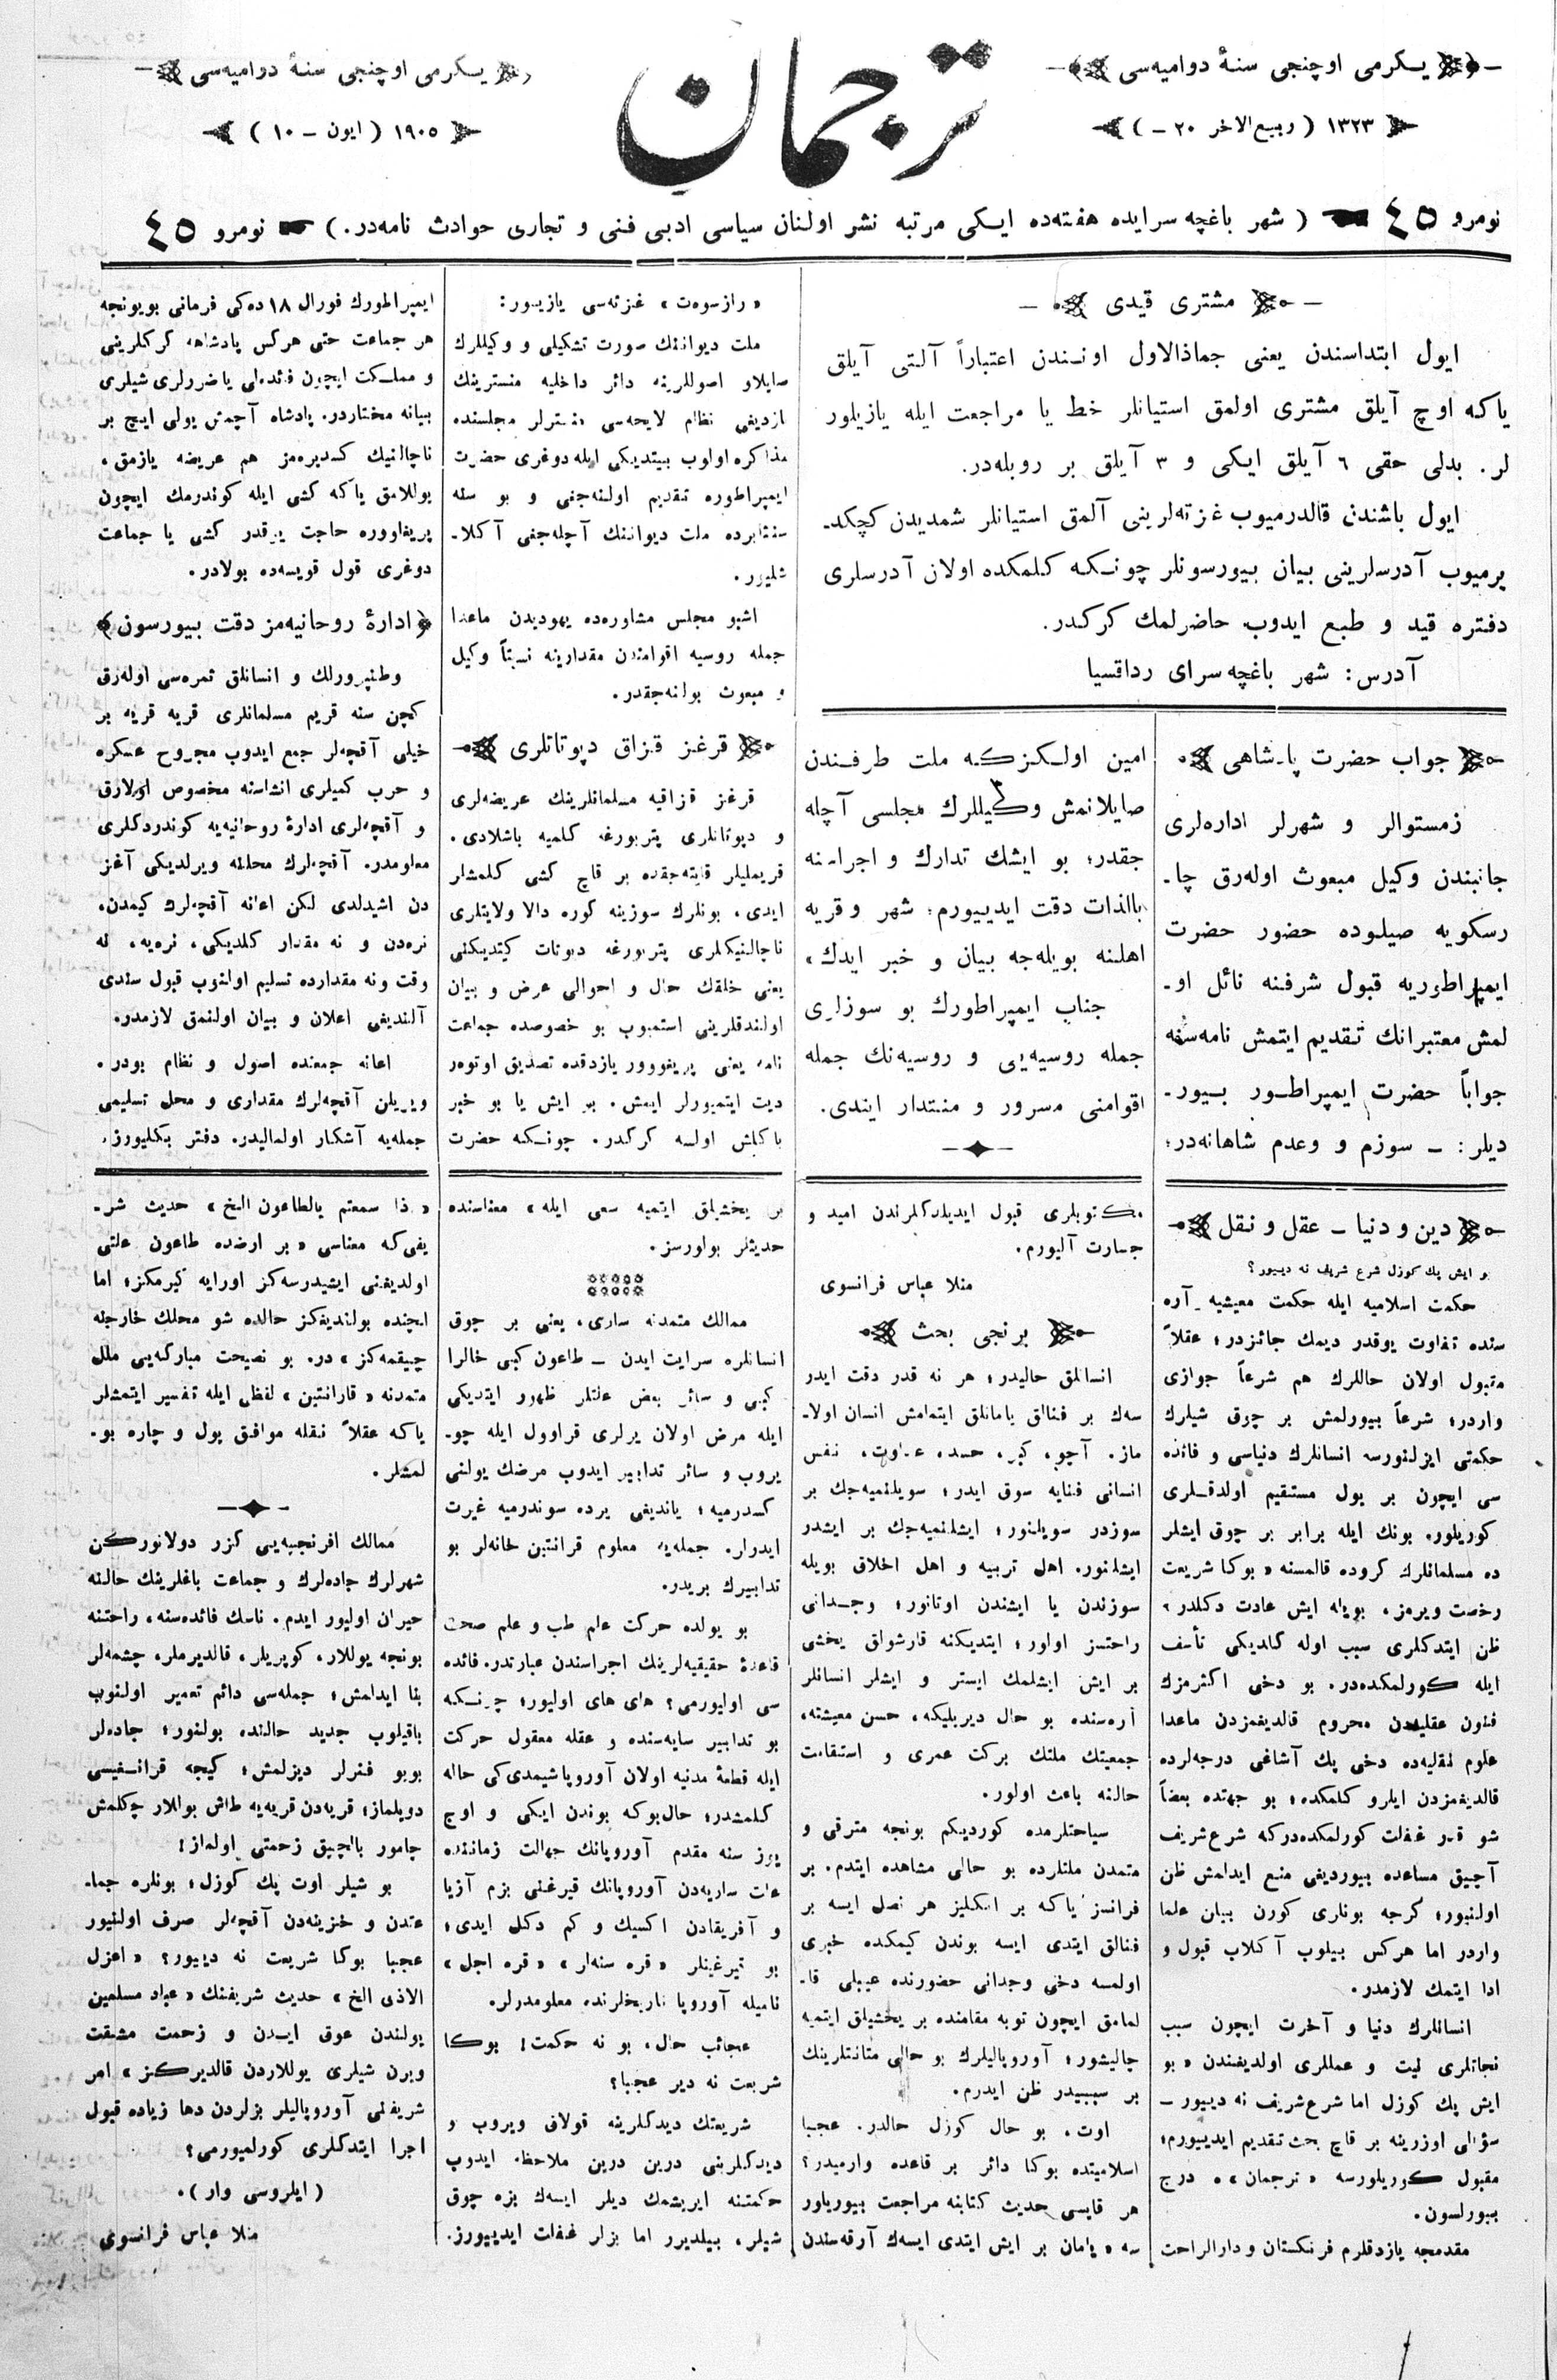 یـكرمی اوچنجی سنهٔ دوامیه‌سی
۱۳۲۳ ( ربیع‌الاخر ۲۰ – )
ترجمان
یـكرمی اوچنجی سنهٔ دوامیه‌سی
۱۹۰۵ ( ایون – ۱۰ )
نومرو ٤٥ ( شهر باغچه سرایده هفته‌ده ایـكی مرتبه نشر اولنان سیاسی ادبی فنی و تجاری حوادث نامه‌در. ) نومرو ٤٥
مشتری قیدی
ایول ابتداسندن یعنی جماذالاول اونـندن اعتباراً آلـتی آیلق
یاكه اوچ آیلق مشتری اولمق استیانلر خط یا مراجعت ایله یازیلور
لر. بدلی حقی ٦ آیلق ایكی و ۳ آیلق بر روبله‌در.
ایول باشندن قالدرمیوب غزته‌لرینی آلمق استیانلر شمدیدن كچكد-
یرمیوب آدرسلرینی بیان بیورسونلر چونـكه كلمكده اولان آدرسلری
دفتره قید و طبع ایدوب حاضرلمك كركدر.
آدرس: شهر باغچه سرای رداقسیا
جواب حضرت پادشاهی
زمستوالر و شهرلر اداره‌لری
جانبندن وكیل مبعوث اوله‌رق چا-
رسكویه صیلوده حضور حضرت
ایمپراطوریه قبول شرفنه نائل او-
لمش معتبرانك تقدیم ایتمش نامه‌سنه
جواباً حضرت ایمپراطـور بـیور-
دیلر: – سوزم و وعدم شاهانه‌در؛
امین اولـكزكه ملت طرفـندن
صایلانمش وكیللرك مجلسی آچله
جقدر؛ بو ایشك تدارك و اجراسنه
باالذات دقت ایدییورم؛ شهر و قریه
اهلنه بویله‌جه بیان و خبر ایدك،
جناب ایمپراطورك بو سوزلری
جمله روسیه‌یی و روسیه‌نك جمله
اقوامنی مسرور و منتدار ایتدی.
« رازسوەت » غزته‌سی یازیـور:
ملت دیواننك صورت تشكیلی و وكیللرك
صایلاو اصوللرینه دائر داخلیه منسترینك
یازدیغی نظام لایحه‌سی منسترلر مجلسنده
مذاكره اولوب بیتدیكی ایله دوغری حضرت
ایمپراطوره تقدیم اولنه‌جغی و بو سنه
سنتابرده ملت دیواننك آچله‌جغی آكلا-
شلیور.
اشبو مجلس مشاوره‌ده یهودیدن ماعدا
جمله روسیه اقوامندن مقدارینه نسبتاً وكیل
و مبعوث بولنه‌جقدر.
قرغز قـزاق دپوتاتلری
قرغز قزاقیه مسلمانلرینك عریضه‌لری
و دپوتاتلری پتربورغه كلمیه باشلادی.
قریملیلر قایته‌جقده بر قاچ كشی كلمشلر
ایدی، بونلرك سوزینه كوره دالا ولایتلری
ناچالنیكلری پتربورغه دپوتات كیتدیكنی
یعنی خلقك حال و احوالی عرض و بیان
اولندقلرینی استمیوب بو خصوصده جماعت
نامه یعنی پریغووور یازدقده تصدیق اوتوەر
دیت ایتمیورلر ایمش. بو ایش یا بو خبر
یاكلش اولسه كركدر. چونـكه حضرت
ایمپراطورك فورال ۱۸ ده‌كی فرمانی بویونجه
هر جماعت حتی هركس پادشاهه كركلرینی
و مملـكت ایچون فائده‌لی یا ضررلری شیلری
بیانه مختاردر. پادشاه آچمش یولی ایـچ بر
ناچالنیك كسدیره‌مز هم عریضه یازمق،
یوللامق یاكه كشی ایله كوندرمك ایچون
پریغاووره حاجت یوقدر كشی یا جماعت
دوغری قول قویسه‌ده بولادر.
﴿ ادارهٔ روحانیه‌مز دقت بـیورسون ﴾
وطنپرورلك و انسانلق ثمره‌سی اوله‌رق
كچن سنه قریم مسلمانلری قریه قریه بر
خیلی آقچه‌لر جمع ایدوب مجروح عسكره
و حرب كمیلری انشاسنه مخصوص اولارق
و آقچه‌لری ادارهٔ روحانیه‌یه كوندردكلری
معلومدر. آقچه‌لرك محلنه ویرلدیكی آغز
دن اشیدلدی لكن اعانه آقچه‌لرك كیمدن،
نره‌دن و نه مقدار كلدیكی، نره‌یه، نه
وقت ونه مقدارده تسلیم اولنوب قبول سندی
آلندیغی اعلان و بیان اولنمق لازمدر.
اعانه جمعنده اصول و نظام بودر.
ویریلن آقچه‌لرك مقداری و محل تسلیمی
جمله‌یه آشكار اولمالیدر. دفتر بكلیورز.
دین و دنیا – عقل و نـقل
بو ایش پك كوزل شرع شریف نه دیـیور؟
حكمت اسلامیه ایله حكمت معیشیه آره
سنده تفاوت یوقدر دیمك جائزدر؛ عقلاً
مقبول اولان حاللرك هم شرعاً جوازی
واردر؛ شرعاً بیورلمش بر چوق شیلرك
حكمتی ایزلنورسه انسانلرك دنیاسی و فائده
سی ایچون بر یول مستقیم اولدقـلری
كوریلور. بونك ایله برابر بر چوق ایشلر
ده مسلمانلرك كروده قالمسنه « بوكا شریعت
رخصت ویرمز، بویله ایش عادت دكلدر »
ظن ایتدكلری سبب اوله كلدیكی تأسف
ایله كورلمكده‌در. بو دخی اكثرمزك
فنون عقلیه‌دن محروم قالدیغمزدن ماعدا
علوم نقلیه‌ده دخی پك آشاغی درجه‌لرده
قالدیغمزدن ایلرو كلمكده؛ بو جهتده بعضاً
شو قدر غفلت كورلمكده‌دركه شرع شریف
آچیق مساعده بیوردیغی منع ایدلمش ظن
اولنیور؛ كرچه بونلری كورن بیان علما
واردر اما هركس بیلوب آكلاب قبول و
ادا ایتمك لازمدر.
انسانلرك دنیا و آخرت ایچون سبب
نجاتلری نیت و عمللری اولدیغندن « بو
ایش پك كوزل اما شرع شریف نه دیـیور –
سؤالی اوزرینه بر قاچ بحث تقدیم ایدییورم؛
مقبول كوریلورسه « ترجمان »ه درج
بیورلسون.
مقدمجه یازدقلرم فرنكستان و دارالراحت
مكتوبلری قبول ایدیلدكلرندن امید و
جسارت آلیورم.
منلا عباس فرانسوی
برنجی بحث
انسانلق حالیدر؛ هر نه قدر دقت ایدر
سه‌ك بر فنالق یامانلق ایتمامش انسان اولا-
ماز. آچو، كبر، حسد، عداوت، نفس
انسانی فنایه سوق ایدر؛ سویلنمیه‌جك بر
سوزدر سویلنور؛ ایشلنمیه‌جك بر ایشدر
ایشلنور. اهل تربیه و اهل اخلاق بویله
سوزندن یا ایشندن اوتانور؛ وجـدانی
راحتسز اولور؛ ایتدیكنه قارشولق یخشی
بر ایش ایشلمك ایستر و ایشلر انسانلر
آره‌سنده بو حال دیریلیكه، حسن معیشته،
جمعیتك ملتك بركت عمری و استقامت
حالنه باعث اولور.
سیاحتلرمده كوردیكم بونجه مترقی و
متمدن ملتلرده بو حالی مشاهده ایتدم. بر
فرانسز یاكه بر انكلیز هر نصل ایسه بر
فنالق ایتدی ایسه بوندن كیمكده خبری
اولمسه دخی وجدانی حضورنده عیبلی قا-
لمامق ایچون توبه مقامنده بر یخشیلق ایتمیه
چالیشور؛ آوروپالیلرك بو حالی متانتلرینك
بر سببیدر ظن ایدرم.
اوت، بو حال كوزل حالدر. عجبا
اسلامیتده بوكا دائر بر قاعده وارمیدر؟
هر قایسی حدیث كتابنه مراجعت بیوریلور
سه « یامان بر ایش ایتدی ایسه‌ك آرقه‌سندن
بر یخشیلق ایتمیه سعی ایله » معناسنده
حدیثلر بولورسز.
ممالك متمدنه ساری، یعنی بر چوق
انسانلره سرایت ایدن – طاعون كبی خالرا
كبی و سائر بعض علتلر ظهور ایتدیكی
ایله مرض اولان یرلری قراوول ایله چو-
یروب و سائر تدابیر ایدوب مرضك یولنی
كسدرمیه؛ یاندیغی یرده سوندرمیه غیرت
ایدرلر. جمله‌یه معلوم قرانتین خانه‌لر بو
تدابیرك بریدر.
بو یولده حركت علم طب و علم صحت
قاعدهٔ حقیقیه‌لرینك اجراسندن عبارتدر. فائده
سی اولیورمی؟ های های اولیور؛ چونـكه
بو تدابیر سایه‌سنده و عقله معقول حركت
ایله قطعهٔ مدنیه اولان آوروپا شیمدی‌كی حاله
كـلمشدر؛ حال‌بوكه بوندن ایكی و اوچ
یوز سنه مقدم آوروپانك جهالت زماننده
علت ساریه‌دن آوروپانك قیرغنی بزم آزیا
و آفریقادن اكسیك و كم دكل ایدی؛
بو قیرغینلر « قره سنه‌لر » « قره اجل »
نامیله آوروپا تاریخلرنده معلومدرلر.
عجائب حال، بو نه حكمت! بوكا
شریعت نه دیر عجبا؟
شریعتك دیدكلرینه قولاق ویروب و
دیدكلرینی درین درین ملاحظه ایدوب
حكمتنه ایریشمك دیلر ایسه‌ك بزه چوق
شیلر، بیلدیرر اما بزلر غفلت ایدییورز.
« اذا سمعتم بالطاعون الـخ » حدیث شر-
یفی‌كه معناسی « بر ارضده طاعون علتی
اولدیغنی ایشیدرسه‌كز اورایه كیرمكز؛ اما
ایچنده بولندیغكز حالده شو محلك خارجنه
چیقمه‌كز » در. بو نصیحت مباركه‌یی ملل
متمدنه « قارانتین » لفظی ایله تفسیر ایتمشلر
یاكه عقلاً نقله موافق یول و چاره بو-
لمشلر.
ممالك افرنجیه‌یی كزر دولانوركن
شهرلرك جاده‌لرك و جماعت باغلرینك حالنه
حیران اولیور ایدم. ناسك فائده‌سنه، راحتنه
بونجه یوللار، كوپریلر، قالدیرملر، چشمه‌لر
بنا ایدلمش؛ جمله‌سی دائم تعمیر اولنوب
باقیلوب جدید حالنده بولنور؛ جاده‌لر
بویو فنرلر دیزلمش؛ كیجه قرانـغیسی
دویلماز؛ قریه‌دن قریه‌یه طاش یوللار چكلمش
چامور بالچیق زحمتی اولماز!
بو شیلر اوت پك كوزل؛ بونلره جما-
عتدن و خزینه‌دن آقچه‌لر صرف اولنیور
عجبا بوكا شریعت نه دیـیور؟ « اعزل
الاذی الخ » حدیث شریفنك « عباد مسلمین
یولندن عوق ایـدن و زحمت مشقت
ویرن شیلری یوللاردن قالدیرـكز » امر
شریفنی آوروپالیلر بزلردن دها زیاده قبول
اجرا ایتدكلری كورلمیورمی؟
( ایلروسی وار ).
منلا عباس فرانسوی